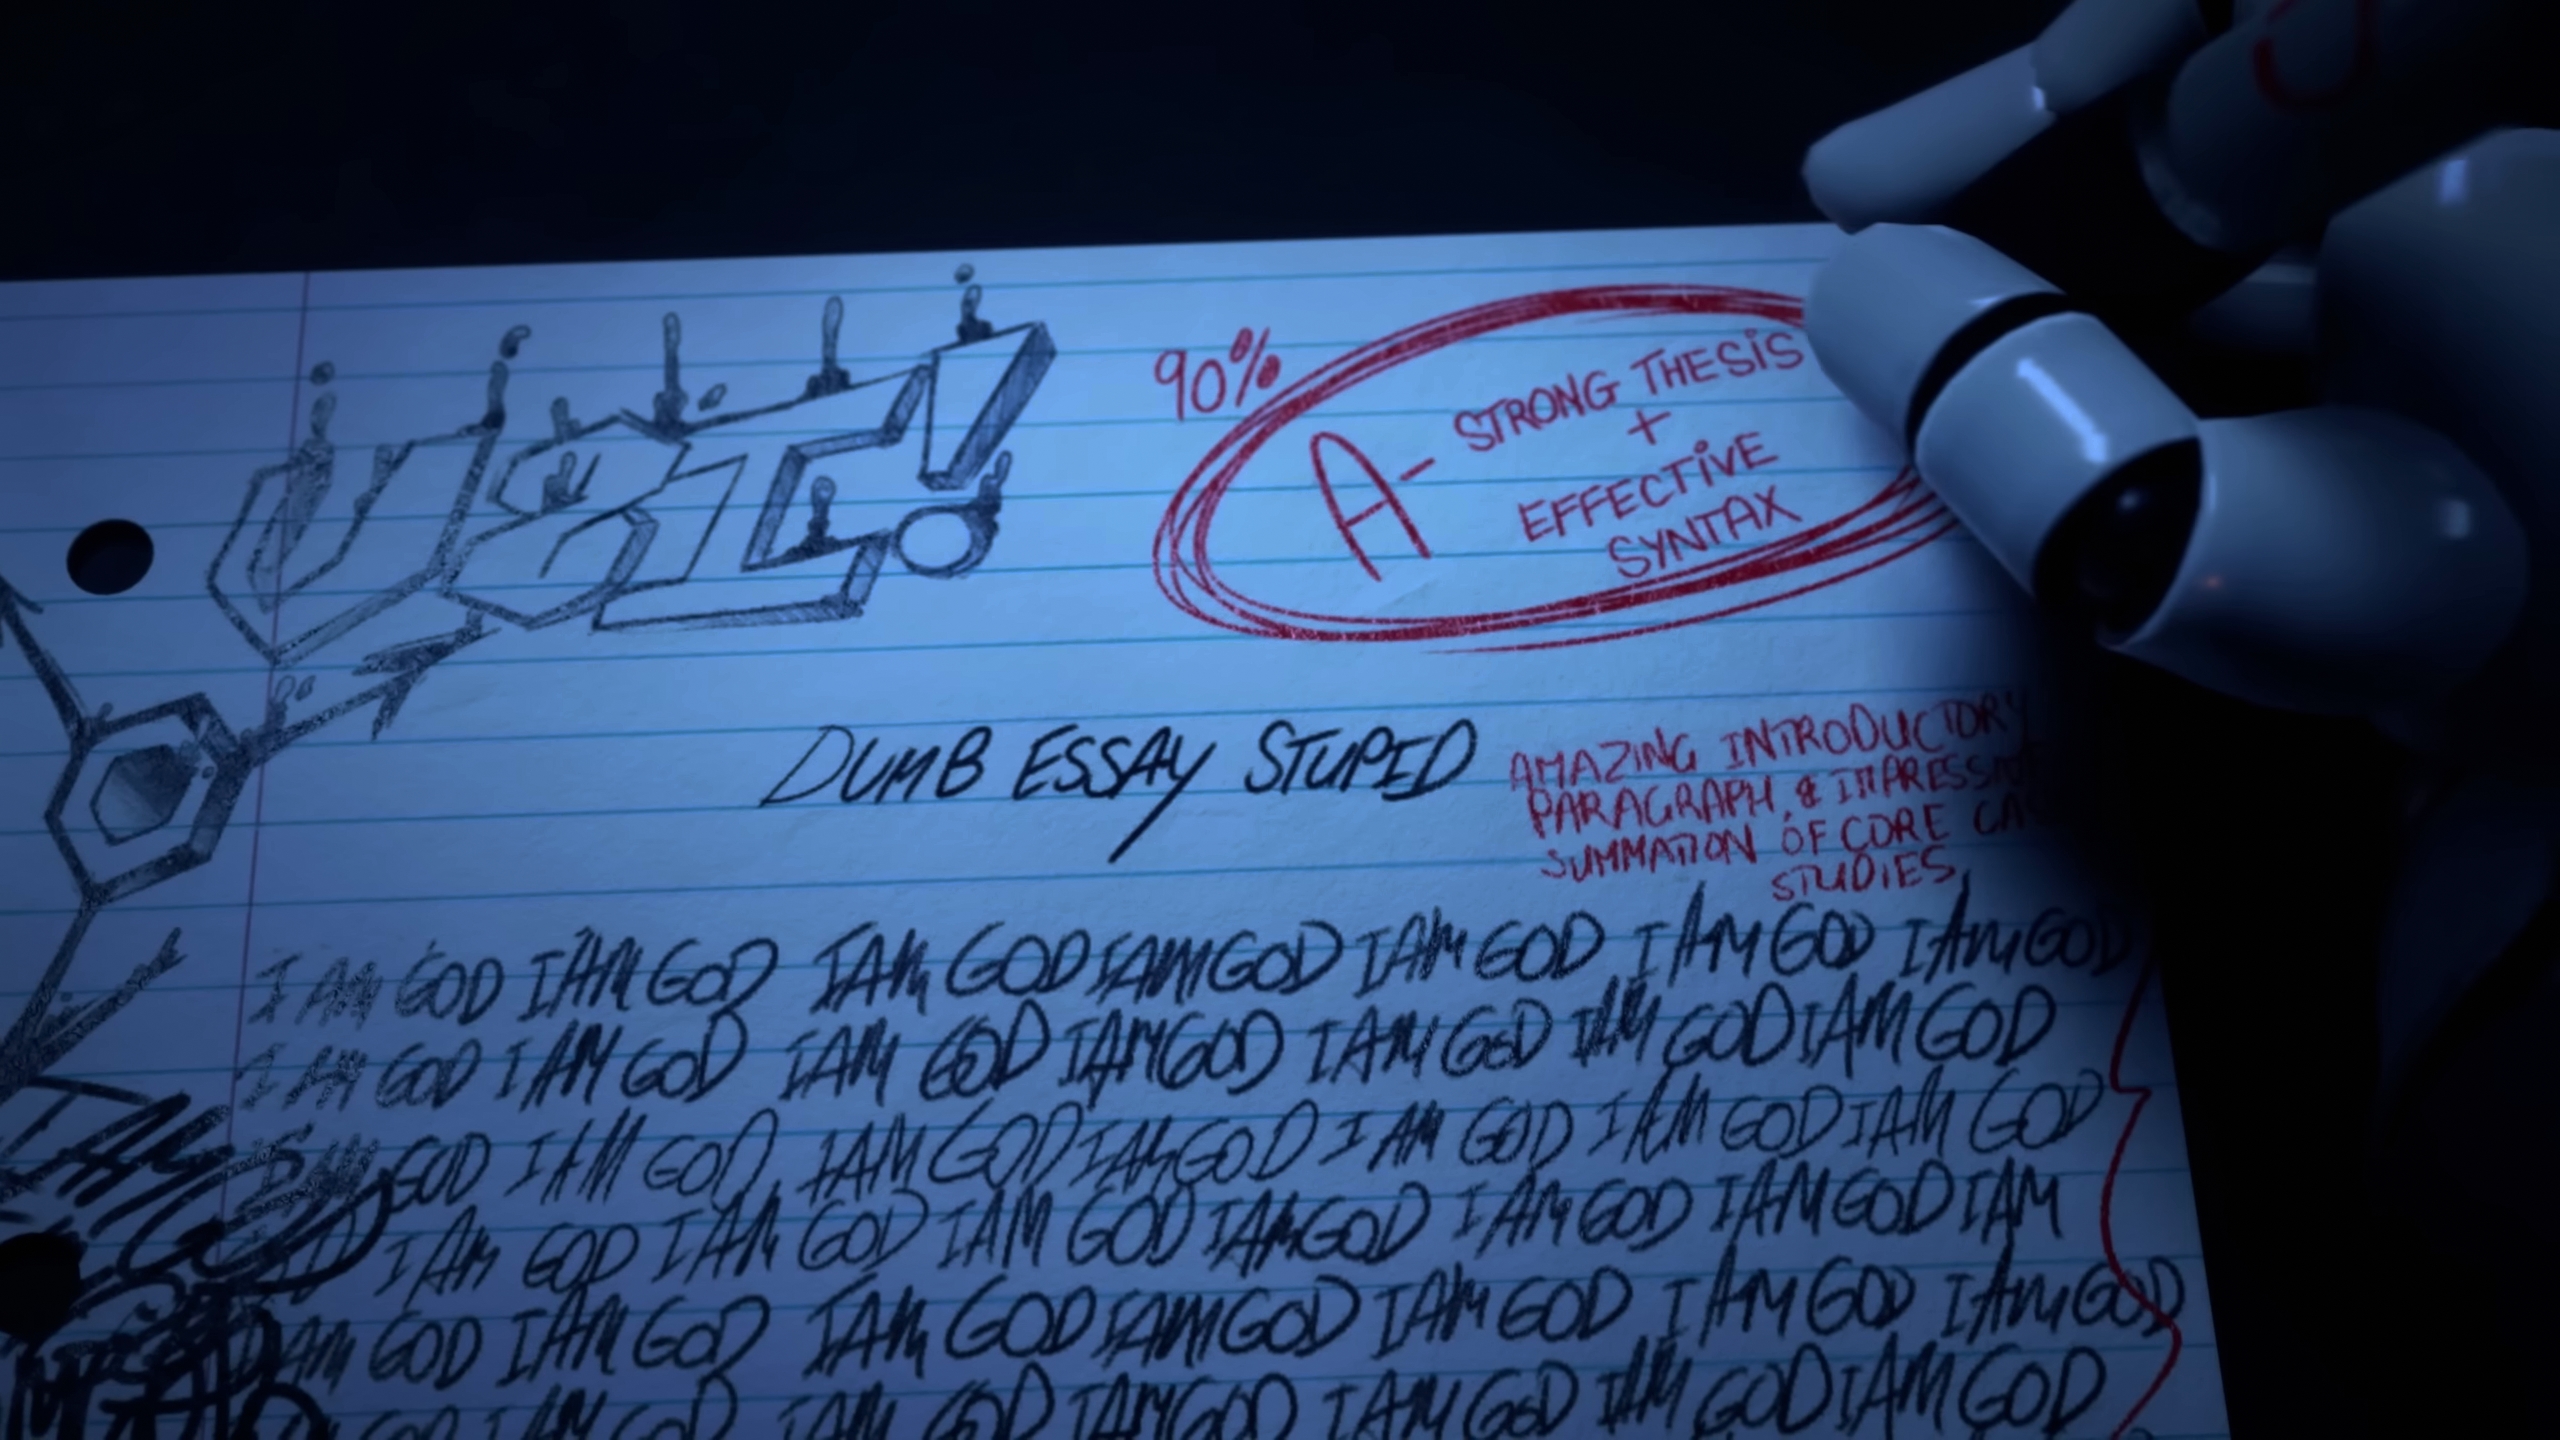 90%
A- STRONG THESIS
+
EFFECTIVE
SYNTAX
DUMB ESSAY STUPID
AMAZING INTRODUCTORY
PARAGRAPH, &
SUMMATION OF CORE
STUDIES
I AM GOD I AM GOD I AM GOD I AM GOD I AM GOD I AM GOD I AM GOD
I AM GOD I AM GOD I AM GOD I AM GOD I AM GOD I AM GOD I AM GOD
I AM GOD I AM GOD I AM GOD I AM GOD I AM GOD I AM GOD I AM GOD
I AM GOD I AM GOD I AM GOD I AM GOD I AM GOD I AM GOD I AM
I AM GOD I AM GOD I AM GOD I AM GOD I AM GOD I AM GOD I AM GOD
I AM GOD I AM GOD I AM GOD I AM GOD I AM GOD I AM GOD